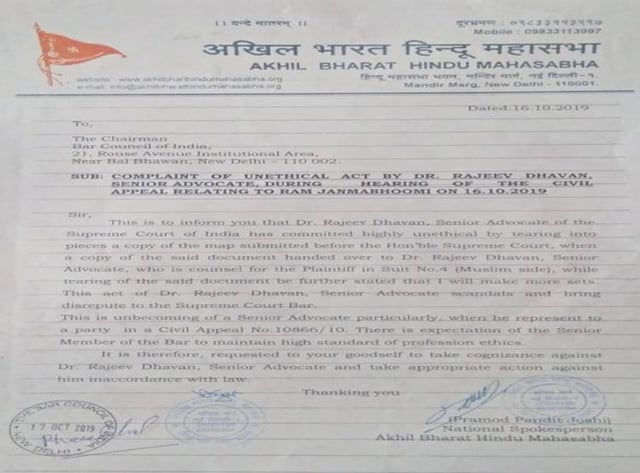 ।। वन्दे मातरम् ।।
दूरभ्रमण : ०९८३३११३९९७
Mobile : 09833113997
अखिल भारत हिन्दू महासभा
AKHIL BHARAT HINDU MAHASABHA
website : www.akhilbharthindumahasabha.org
e-mail: info@akhilbharathindumahasabha.org
हिन्दू महासभा भवन, मन्दिर मार्ग, नई दिल्ली - १.
Mandir Marg, New Delhi - 110001.
Dated:16.10.2019
To,
The Chairman
Bar Council of India,
21, Rouse Avenue Institutional Area,
Near Bal Bhawan, New Delhi – 110 002.
SUB: COMPLAINT OF UNETHICAL ACT BY DR. RAJEEV DHAVAN,
SENIOR ADVOCATE, DURING HEARING OF THE CIVIL
APPEAL RELATING TO RAM JANMABHOOMI ON 16.10.2019
Sir,
This is to inform you that Dr. Rajeev Dhavan, Senior Advocate of the
Supreme Court of India has committed highly unethical by tearing into
pieces a copy of the map submitted before the Hon'ble Supreme Court, when
a copy of the said document handed over to Dr. Rajeev Dhavan, Senior
Advocate, who is counsel for the Plaintiff in Suit No.4 (Muslim side), while
tearing of the said document be further stated that I will make more sets.
This act of Dr. Rajeev Dhavan, Senior Advocate scandals and bring
disrepute to the Supreme Court Bar.
This is unbecoming of a Senior Advocate particularly, when be represent to
a party in a Civil Appeal No.10866/10. There is expectation of the Senior
Member of the Bar to maintain high standard of profession ethics.
It is therefore, requested to your goodself to take cognizance against
Dr. Rajeev Dhavan, Senior Advocate and take appropriate action against
him inaccordance with law.
Thanking you
(Pramod Pandit Joshi)
National Spokesperson
Akhil Bharat Hindu Mahasabha
THE BAR COUNCIL OF INDIA
17 OCT 2019
NEW DELHI